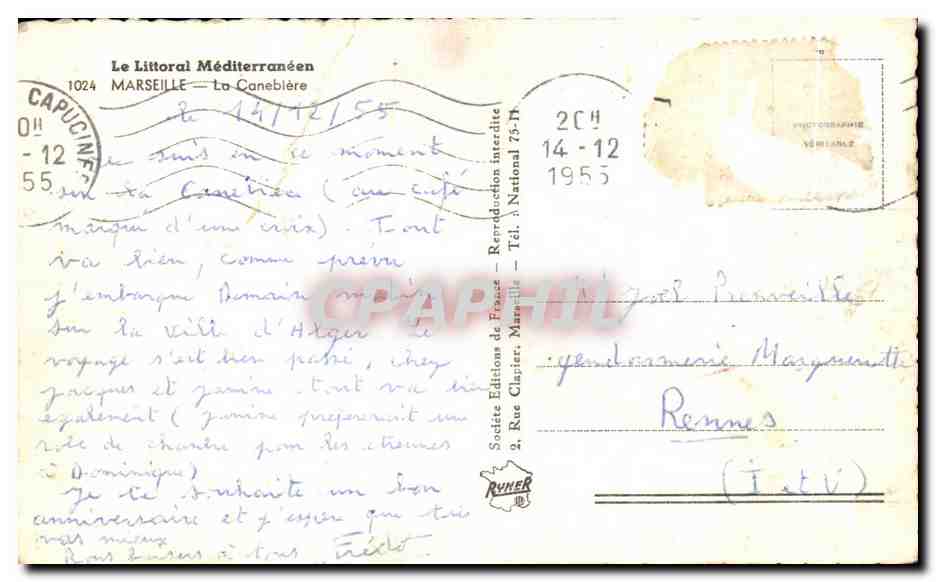 Le Littoral Méditerranéen
1024 MARSEILLE — La Canebière
le 14/12/55
Je suis en ce moment
sur la Canebière (au café
marqué d'une croix). Tout
va bien, comme prévu
j'embarque Demain matin
sur la ville d'Alger. Le
voyage s'est bien passé, chez
Jacques et Janine tout va bien
également (Janine préférerait une
robe de chambre pour les étrennes
à Dominique)
Je te souhaite un bon
anniversaire et j'espère que tu
vas mieux
Bons baisers à tous Frédo
CAPUCINES
0H
-12
55
Société Editions de France — Reproduction interdite
2, Rue Clapier, Marseille — Tél. : National 75-11
20H
14-12
1955
PHOTOGRAPHIE
VÉRITABLE
Joël
gendarmerie Margueritte
Rennes
(I et V)
RYNER
CPAPHIL